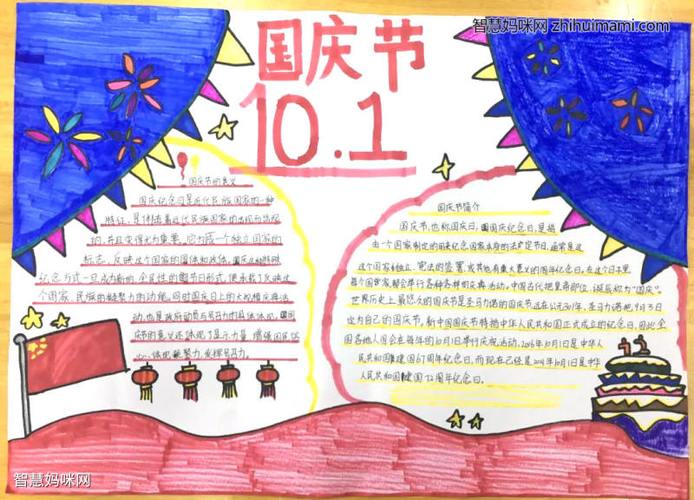 智慧妈咪网 zhihuimami.com
国庆节
10.1
国庆节的意义
国庆纪念日是近代民族国家的一种
特征，是伴随着近代民族国家的出现而出现
的，并且变得尤为重要。它成为一个独立国家的
标志，反映这个国家的国体和政体。国庆这种特殊
纪念方式一旦成为新的、全民性的节日形式，便承载了反映这
个国家、民族的凝聚力的功能。同时国庆日上的大规模庆典活
动，也是政府动员与号召力的具体体现。
显示力量、增强国民信
心，体现凝聚力，发挥号召力。
国庆节简介
国庆节，也称国庆日、国庆纪念日，是指
由一个国家制定的用来纪念国家本身的法定节日，通常是这
这个国家的独立、宪法的签署，或其他有重大意义的周年纪念日。在这个日子里
每个国家都会举行各种各样的庆典活动。中国古代把皇帝即位、诞辰称为“国庆”。
世界历史上最悠久的国庆节是圣马力诺的国庆节，远在公元301年，圣马力诺把9月3日
定为自己的国庆节。新中国国庆节特指中华人民共和国正式成立的纪念日，因此全
国各地人国会在每年的10月1日举行庆祝活动。2016年10月1日是中华人
民共和国建国67周年纪念日。而现在已经是2021年10月1日是中华
人民共和国建国72周年纪念日。
72
智慧妈咪网